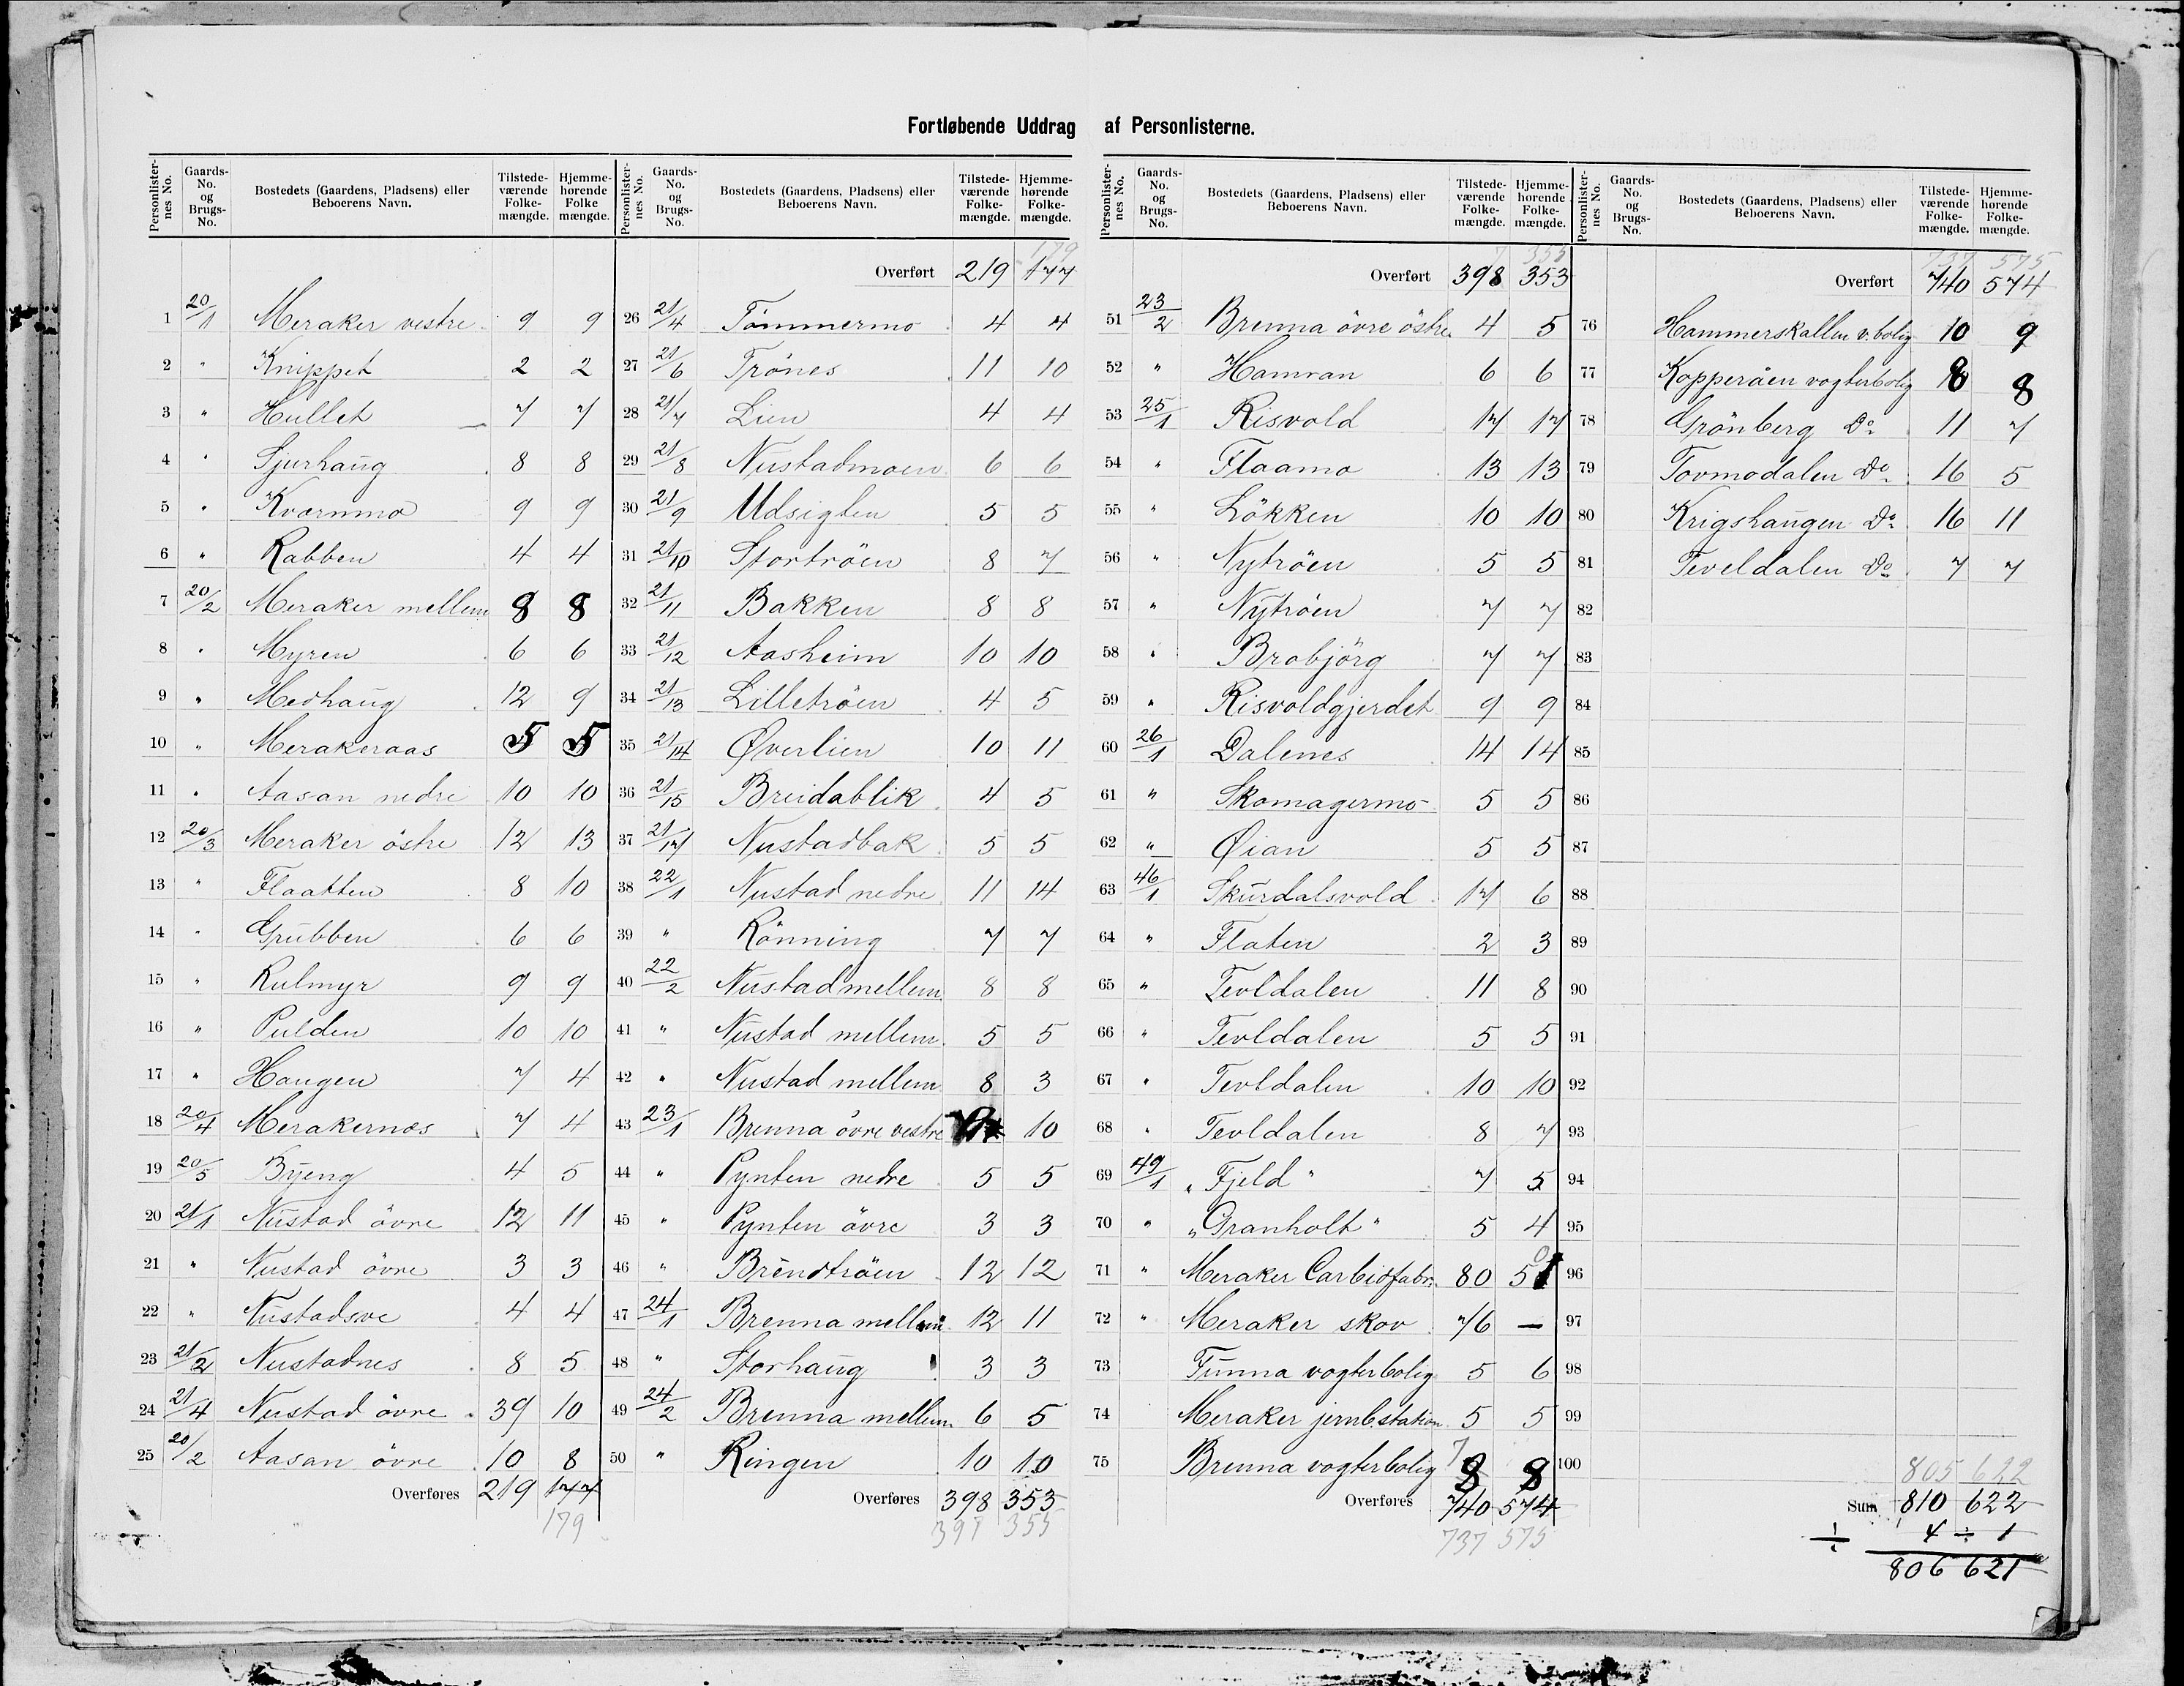 Fortløbende Uddrag af Personlisterne.
Personlister-nes No. | Gaards-No. og Brugs-No. | Bostedets (Gaardens, Pladsens) eller Beboerens Navn. | Tilstede-værende Folke-mængde. | Hjemme-hørende Folke mængde.
1 20/1 Meraker vestre 9 9
2 " Knippet 2 2
3 " Hullet 7 7
4 " Sjurhaug 8 8
5 " Kvernmo 9 9
6 " Rabben 4 4
7 20/2 Meraker mellem 8 8
8 " Myren 6 6
9 " Medhaug 12 9
10 " Merakeraas 5 5
11 " Aasan nedre 10 10
12 20/3 Meraker östre 12 13
13 " Flaatten 8 10
14 " Grubben 6 6
15 " Kulmyr 9 9
16 " Pulden 10 10
17 " Haugen 7 4
18 20/4 Merakernæs 7 4
19 20/5 Byeng 4 5
20 21/1 Nustad övre 12 11
21 " Nustad övre 3 3
22 " Nustadsve 4 4
23 21/2 Nustadnes 8 5
24 21/4 Nustad övre 39 10
25 20/2 Aasan övre 10 8
Overføres 219 177
179
Personlister-nes No. | Gaards-No. og Brugs-No. | Bostedets (Gaardens, Pladsens) eller Beboerens Navn. | Tilstede-værende Folke-mængde. | Hjemme-hørende Folke-mængde.
179
Overført 219 177
26 21/4 Tömmermo 4 4
27 21/6 Trönes 11 10
28 21/7 Lien 4 4
29 21/8 Nustadmoen 6 6
30 21/9 Udsigten 5 5
31 21/10 Stortröen 8 7
32 21/11 Bakken 8 8
33 21/12 Aasheim 10 10
34 21/13 Lilletröen 4 5
35 21/14 Øverlien 10 11
36 21/15 Breidablik 4 5
37 21/17 Nustadbak 5 5
38 22/1 Nustad nedre 11 14
39 " Rönning 7 7
40 22/2 Nustad mellem 8 8
41 " Nustad mellem 5 5
42 " Nustad mellem 8 3
43 23/1 Brenna övre vestre 10
44 " Pynten nedre 5 5
45 " Pynten övre 3 3
46 " Brendtröen 12 12
47 24/1 Brenna mellem 12 11
48 " Storhaug 3 3
49 24/2 Brenna mellem 6 5
50 " Ringen 10 10
Overføres 398 353
397 355
Personlister-nes No. | Gaards-No. og Brugs-No. | Bostedets (Gaardens, Pladsens) eller Beboerens Navn. | Tilstede-værende Folke-mængde. | Hjemme-hørende Folke-mængde.
7 355
Overført 398 353
51 23/2 Brenna övre östre 4 5
52 " Hamran 6 6
53 25/1 Risvold 17 17
54 " Flaamo 13 13
55 " Lökken 10 10
56 " Nytröen 5 5
57 " Nytröen 7 7
58 " Brobjörg 7 7
59 " Risvoldgjerdet 9 9
60 26/1 Dalenes 14 14
61 " Skomagermo 5 5
62 " Øian 5 5
63 46/1 Skurdalsvold 17 6
64 " Flaten 2 3
65 " Tevldalen 11 8
66 " Tevldalen 5 5
67 " Tevldalen 10 10
68 " Tevldalen 8 7
69 49/1 "Fjeld" 7 5
70 " "Granholt" 5 4
71 " Meraker Carbidfabr. 80 50
72 " Meraker skov 76 —
73 Tunna vogterbolig 5 6
74 Meraker jernb.station 5 5
75 Brenna vogterbolig 7 8 8
Overføres 740 574
737 575
Personlister-nes No. | Gaards-No. og Brugs-No. | Bostedets (Gaardens, Pladsens) eller Beboerens Navn. | Tilstede-værende Folke-mængde. | Hjemme-hørende Folke-mængde.
737 575
Overført 740 574
76 Hammerskallen v.bolig 10 9
77 Kopperåen vogterbolig 8 8
78 Grönberg Do 11 7
79 Tovmodalen Do 16 5
80 Krigshaugen Do 16 11
81 Teveldalen Do 7 7
82
83
84
85
86
87
88
89
90
91
92
93
94
95
96
97
98
99
100
805 622
Sum 810 622
÷ 4 ÷ 1
806 621